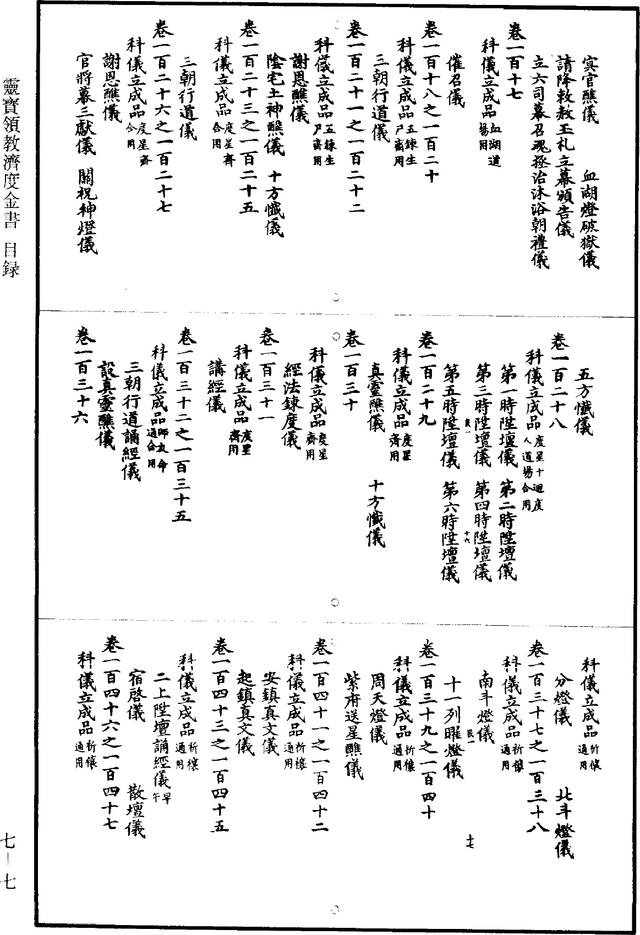 冥官醮儀　血湖燈破獄儀
請降敕赦玉札立幕頒告儀
立六司幕召魂拯治沐浴朝禮儀
卷一百十七
科儀立成品血湖道場用
催召儀
卷一百十八之一百二十
科儀立成品五鍊生尸齋用
三朝行道儀
卷一百二十一之一百二十二
科儀立成品五鍊生尸齋用
謝恩醮儀
陰宅土神醮儀　十方懺儀
卷一百二十三之一百二十五
科儀立成品度星齋合用
三朝行道儀
卷一百二十六之一百二十七
科儀立成品度星齋合用
謝恩醮儀
官將幕三獻儀　關祝神燈儀
五方懺儀
卷一百二十八
科儀立成品度星十迴度人道場合用
第一時陞壇儀　第二時陞壇儀
第三時陞壇儀　第四時陞壇儀
民一　十六
第五時陞壇儀　第六時陞壇儀
卷一百二十九
科儀立成品度星齋用
真靈醮儀　十方懺儀
卷一百三十
科儀立成品度星齋用
經法鍊度儀
卷一百三十一
科儀立成品度星齋用
講經儀
卷一百三十二之一百三十五
科儀立成品師友命過合用
三朝行道誦經儀
設真靈醮儀
卷一百三十六
科儀立成品祈禳通用
分燈儀　北斗燈儀
卷一百三十七之一百三十八
科儀立成品祈禳通用
南斗燈儀
民一　十七
十一列曜燈儀
卷一百三十九之一百四十
科儀立成品祈禳通用
周天燈儀
紫府送星醮儀
卷一百四十一之一百四十二
科儀立成品祈禳通用
安鎮真文儀
起鎮真文儀
卷一百四十三之一百四十五
科儀立成品祈禳通用
二上陞壇誦經儀早午
宿啓儀　散壇儀
卷一百四十六之一百四十七
科儀立成品祈禳通用
靈寶領教濟度金書　目録
七—七